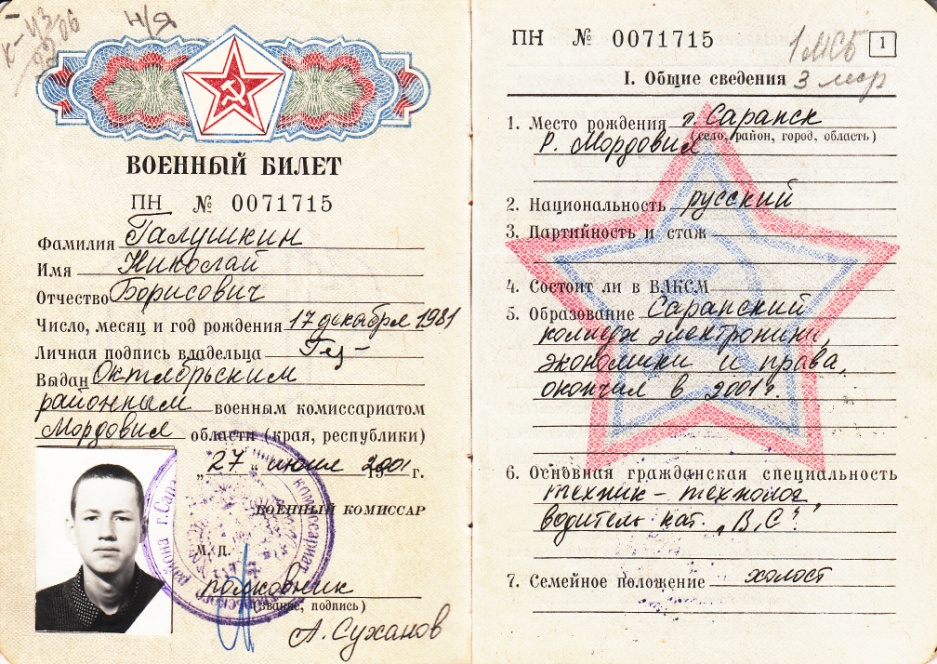 Н/Я
ВОЕННЫЙ БИЛЕТ
ПН № 0071715
Фамилия Галушкин
Имя Николай
Отчество Борисович
Число, месяц и год рождения 17 декабря 1981
Личная подпись владельца
Выдан Октябрьским
районным военным комиссариатом
Мордовия области (края, республики)
„27" июня 2001 г.
ВОЕННЫЙ КОМИССАР
М. П.
полковник
(звание, подпись)
А. Суханов
ПН № 0071715
1 МСБ
1
I. Общие сведения
3
1. Место рождения г. Саранск
(село, район, город, область)
Р. Мордовия
2. Национальность русский
3. Партийность и стаж
4. Состоит ли в ВЛКСМ
5. Образование Саранский
колледж электроники,
экономики и права,
окончил в 2001 г.
6. Основная гражданская специальность
техник - технолог
водитель кат. „В, С"
7. Семейное положение холост